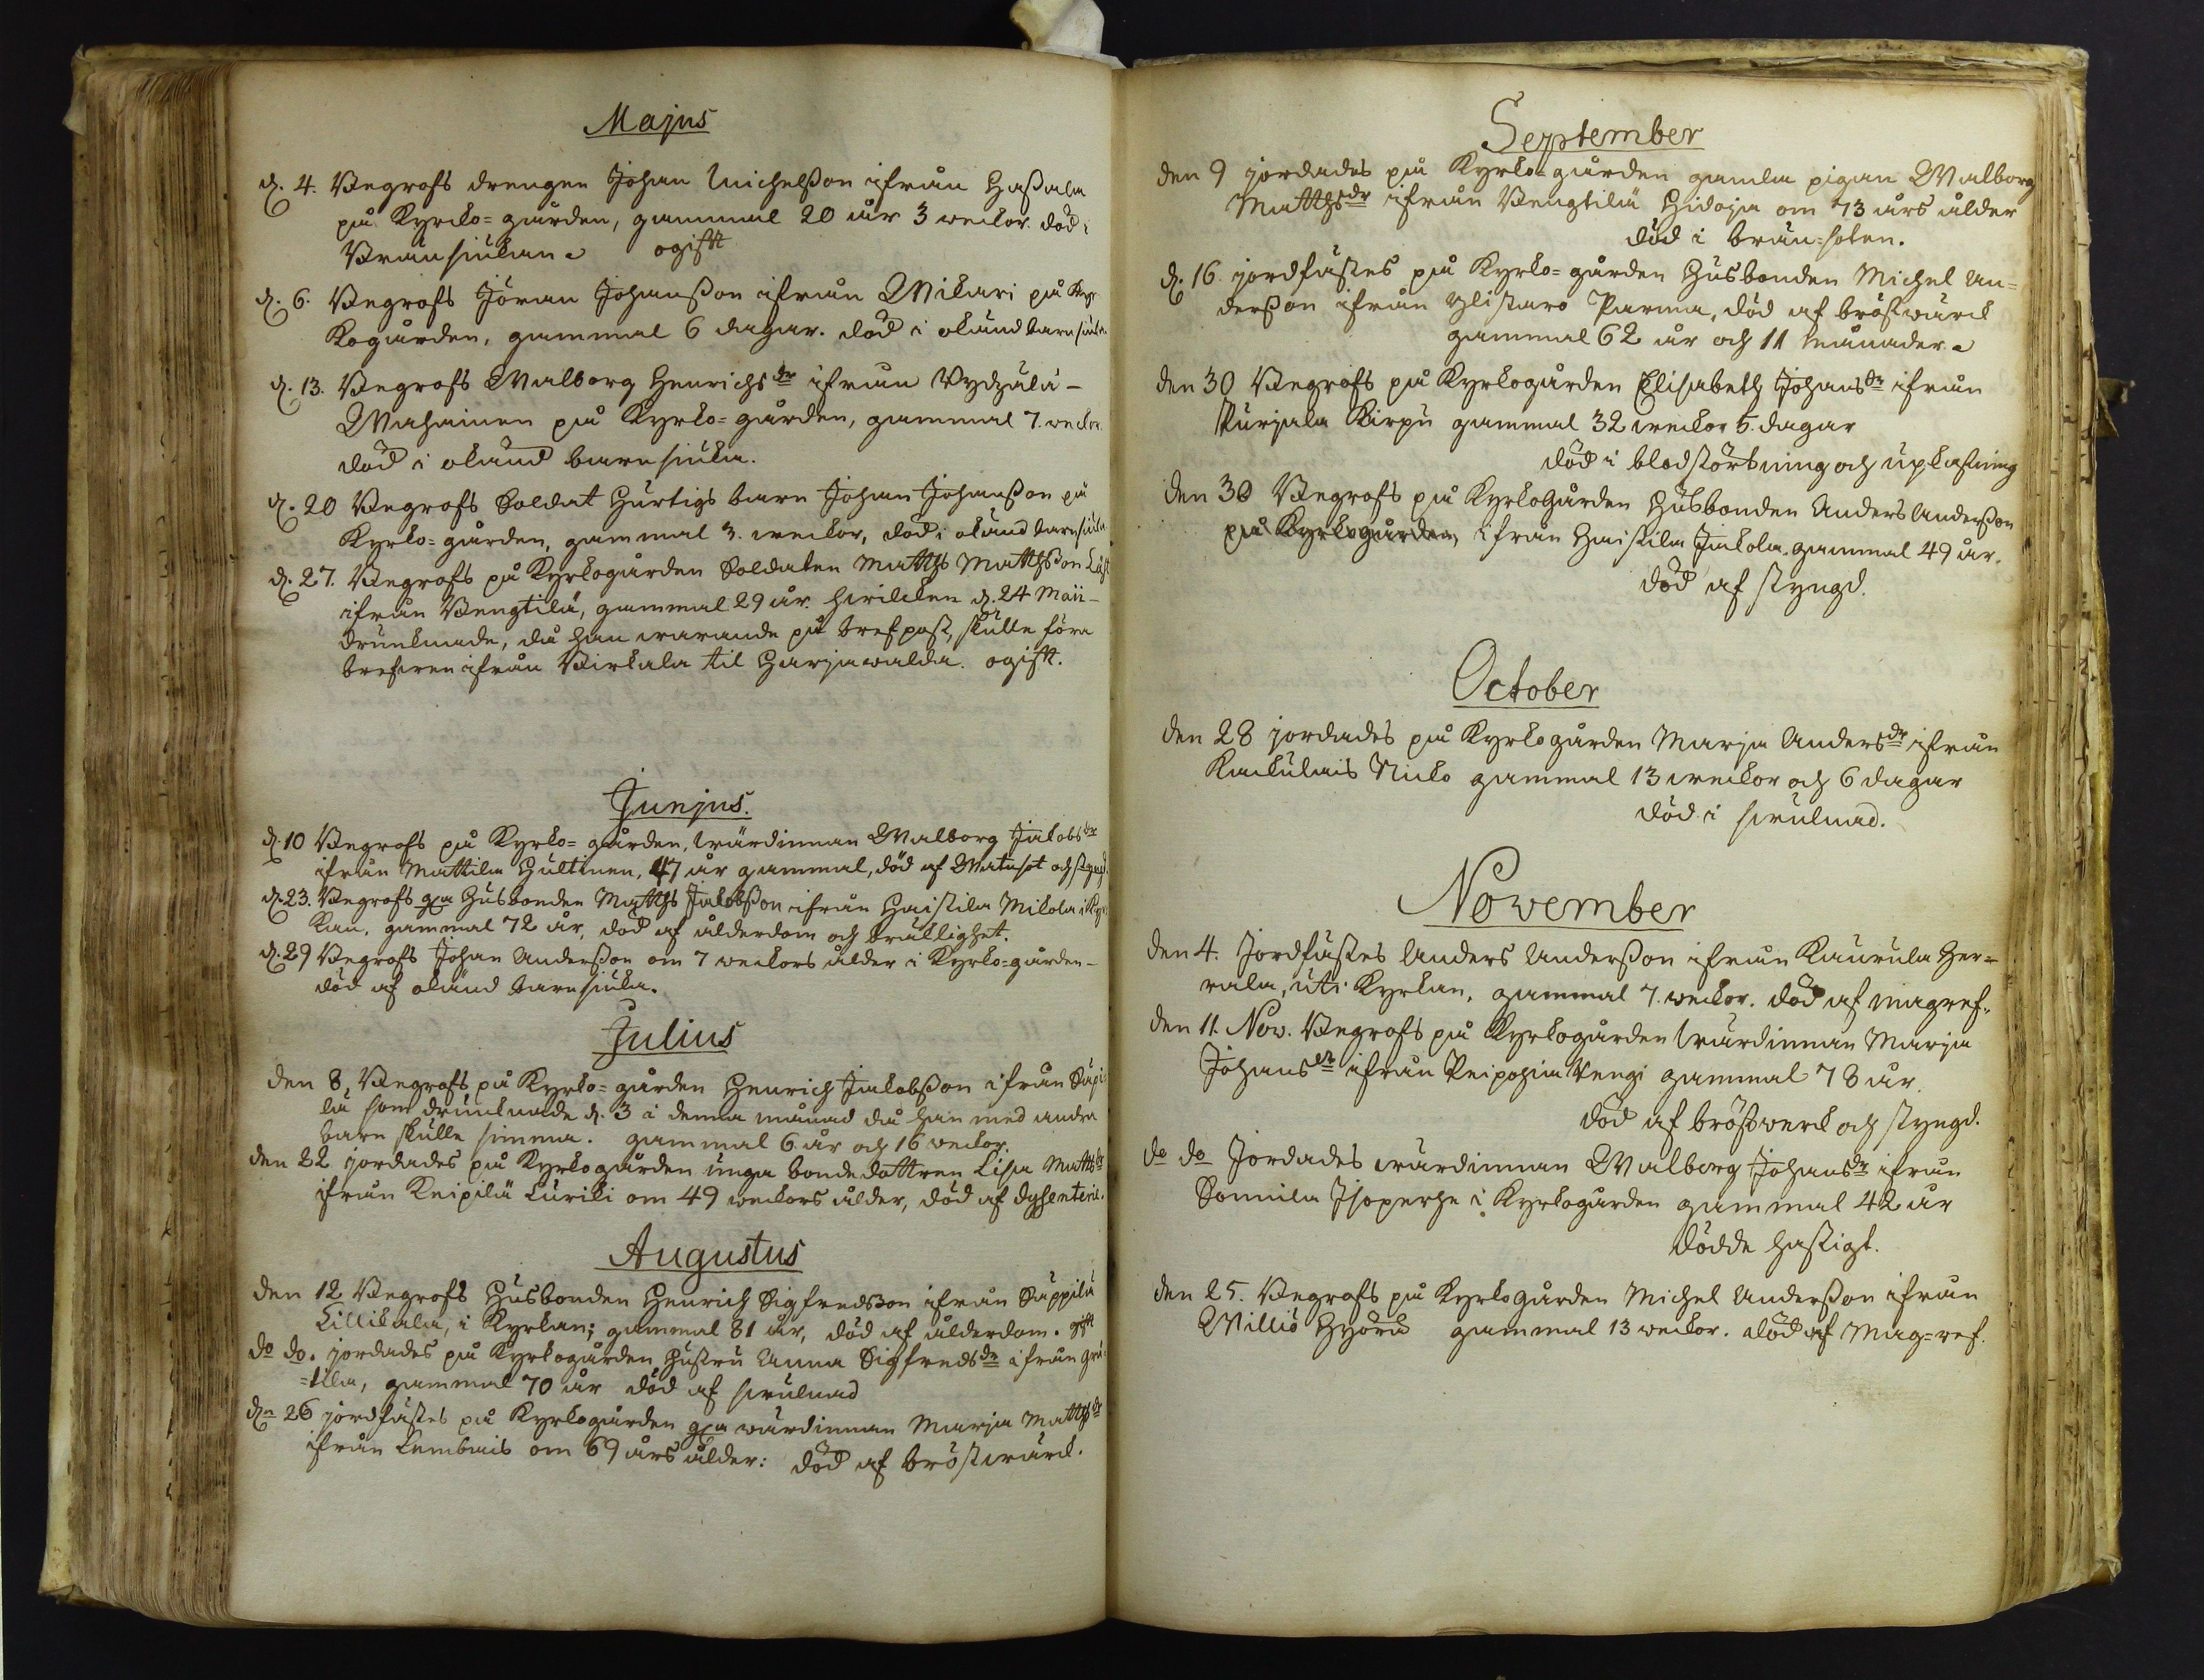 Majus
d. 4. Begrofs drengen Johan Michelsson ifrån Hassala
på Kyrcko=gården, gammal 20 år 3 weckor. död i
Brånsiukan. ogifft
d. 6. Begrofs Jöran Johansson ifrån Mikari på Kyr
kogården, gammal 6 dagar. död i okänd barnsiuka
d. 13. Begrofs Walborg Henrichsdr ifrån
på Kyrko=gården, gammal 7. weckor.
död i okänd barnsiuka.
d. 20 Begrofs Soldat Hurtigs barn Johan Johansson på
Kyrko=gården, gammal 3. weckor, död i okänd barnsiuka
d. 27. Begrofs på Kyrkogården Soldaten Matths Matthsson
ifrån Bengtilä, gammal 29 år. hwilcken d. 24 Maii
drunknade, då han warande på brefpost, skulle föra
brefwen ifrån Birkala til Harjawalda. ogifft.
Junjus.
d. 10 Begrofs på Kyrko=gården, wärdinnan Walborg Jakobsdr
ifrån Mattila Hultinen, 47 år gammal, död af Watusot och styngd.
d. 23. Begrofs gla Husbonden Matths Jakobsson ifrån Haistila Mikola i Kyr
kan, gammal 72 år, död af ålderdom och bräcklighet.
d. 29 Begrofs Johan Andersson om 7 weckors ålder i Kyrko=gården
död af okänd barnsiuka.
Julius
den 8. Begrofs på Kyrko=gården Henrich Jakobsson ifrån Säpi
lä som drunknade d. 3 i denna månad då han med andra
barn skulle simma. gammal 6 år och 16 weckor.
den 22 jordades på Kyrkogården unga bondedottren Lisa Matthsdr
ifrån Knipilä Luriki om 49 weckors ålder, död af dysenterie.
Augustus
den 12 Begrofs Husbonden Henrich Sigfredsson ifrån Säppilä
Lillikala, i Kyrkan; gammal 81 år, död af ålderdom. gifft
do do. jordades på Kyrkogården hustru Anna Sigfredsdr ifrån
gammal 70 år död af swulnad
den 26 jordfästes på Kyrkogården gla wärdinnan Marja Matthsdr
ifrån Lembais om 69 års ålder: död af bröstwärck.
September
den 9 jordades på Kyrko=gården gamla pigan Walborg
Matthsdr ifrån Bengtilä Hidoja om 73 års ålder
död i brän=soten.
d. 16. jordfästes på Kyrko=gården Husbonden Michel An=
dersson ifrån Ylistaro Parma, död af bröstwärck
gammal 62 år och 11 månader.
den 30 Begrofs på Kyrkogården Elisabeth Johansdr ifrån
Purjala Kirpu gammal 32 weckor 5. dagar
död i blodstörtning och upkastning
den 30 Begrofs på Kyrkogården Husbonden Anders Andersson
på Kyrkogården, ifrån Haistila Jakola. gammal 49 år.
död af styngd.
October
den 28 jordades på Kyrkogården Marja Andersdr ifrån
Kaukulais Nicko gammal 13 weckor och 6 dagar
död i swulnad.
November
den 4. Jordfästes Anders Andersson ifrån Kaurula Her=
rala, uti Kyrkan, gammal 7. weckor. död af magref.
den 11. Nov. Begrofs på Kyrkogården wärdinnan Marja
Johansdr ifrån Peipohja Kengi gammal 78 år.
död af bröstwerck och styngd.
do do Jordades wärdinnan Walborg Johansdr ifrån
Sonnila Isoperhe i Kyrkogården gammal 42 år
dödde hastigt.
den 25. Begrofs på Kyrkogården Michel Andersson ifrån
Williö Hyöru gammal 13 weckor. död af Mag=ref.